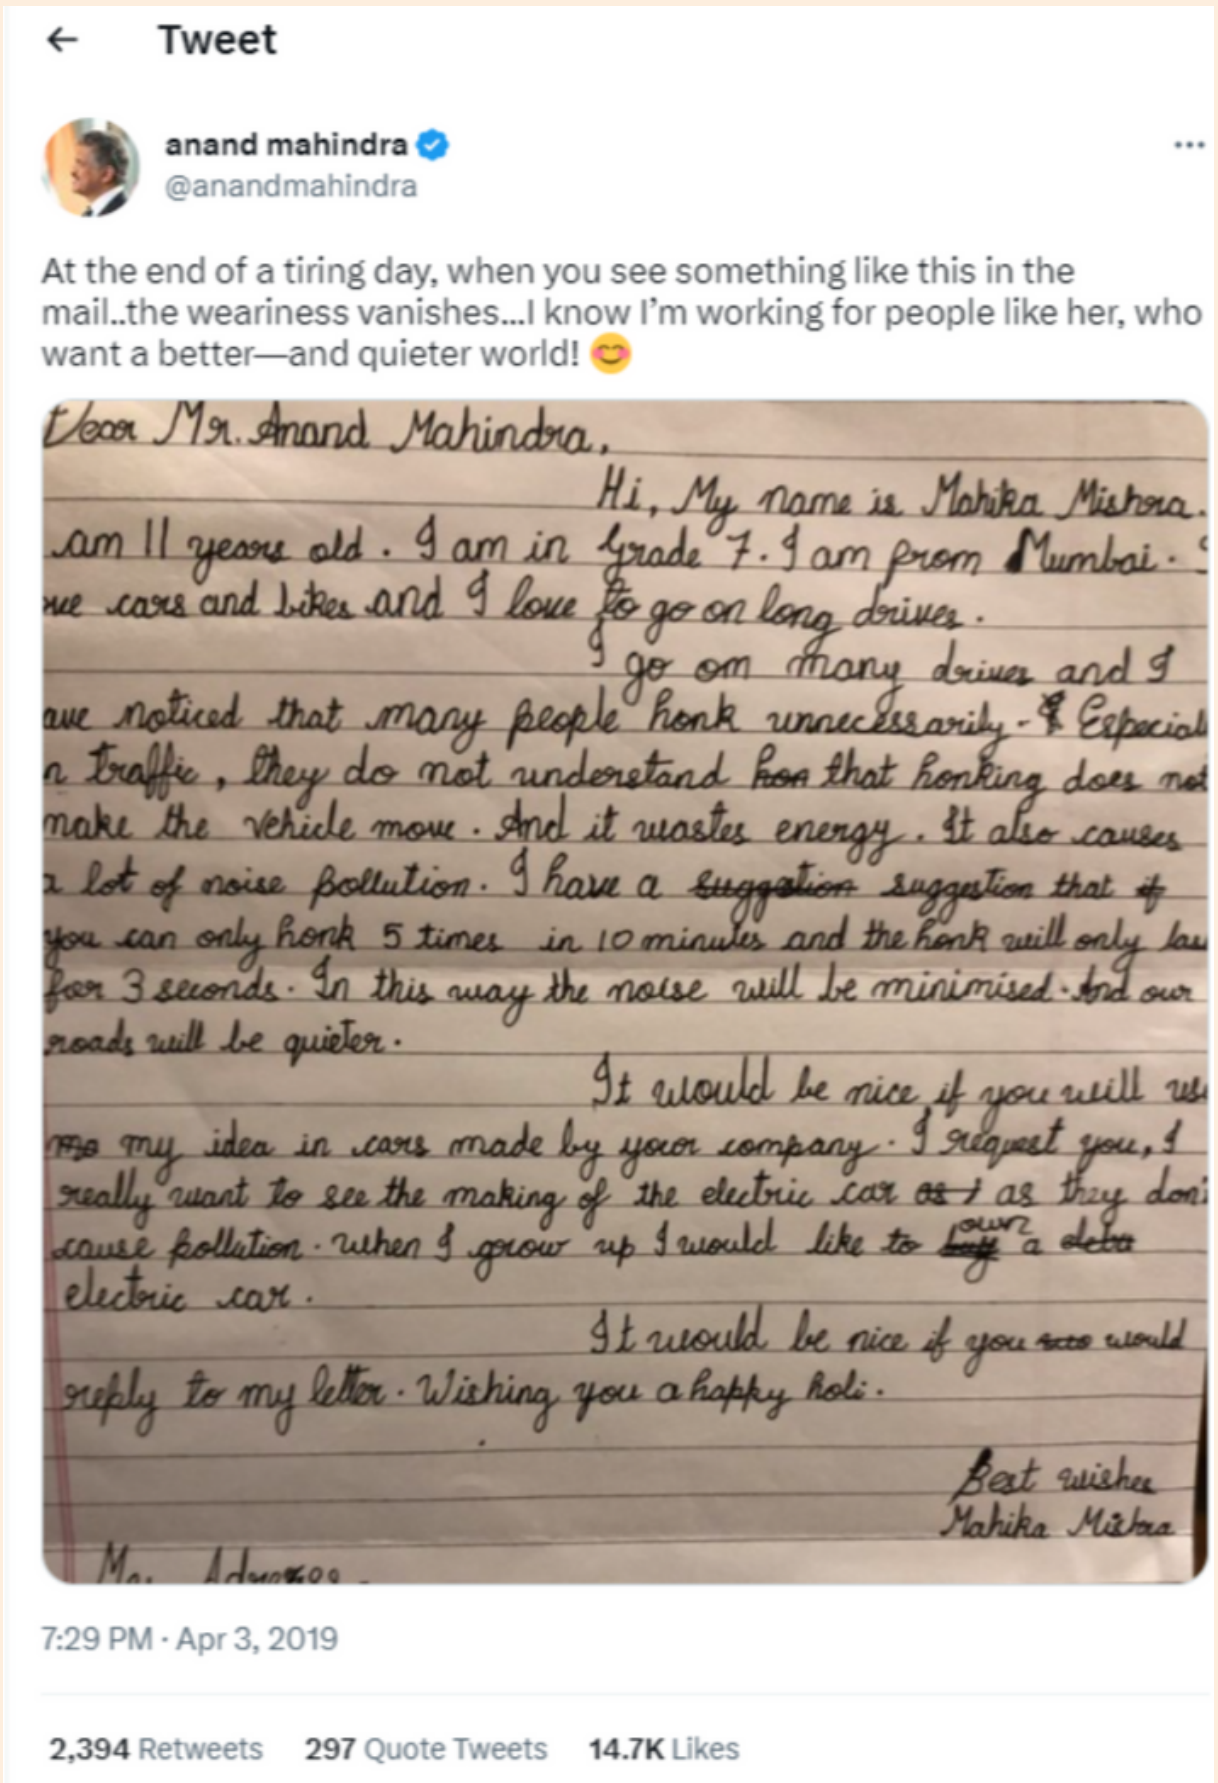 Tweet
anand mahindra
@anandmahindra
At the end of a tiring day, when you see something like this in the
mail..the weariness vanishes...I know I'm working for people like her, who
want a better—and quieter world! 😊
Dear Mr. Anand Mahindra,
Hi, My name is Mahika Mishra.
am 11 years old. I am in Grade 7. I am from Mumbai.
cars and bikes and I love to go on long drives.
I go om many drives and I
ave noticed that many people honk unnecessarily. Especial
n traffic, they do not understand hon that honking does not
make the vehicle move. And it wastes energy. It also causes
a lot of noise pollution. I have a suggetion suggestion that if
you can only honk 5 times in 10 minutes and the honk will only las
for 3 seconds. In this way the noise will be minimised. And our
roads will be quieter.
It would be nice if you will us
my idea in cars made by your company. I request you, I
really want to see the making of the electric car as I as they don'
cause pollution. When I grow up I would like to buy own a
electric car.
It would be nice if you would
reply to my letter. Wishing you a happy holi.
Best wishes
Mahika Mishra
7:29 PM · Apr 3, 2019
2,394 Retweets 297 Quote Tweets 14.7K Likes